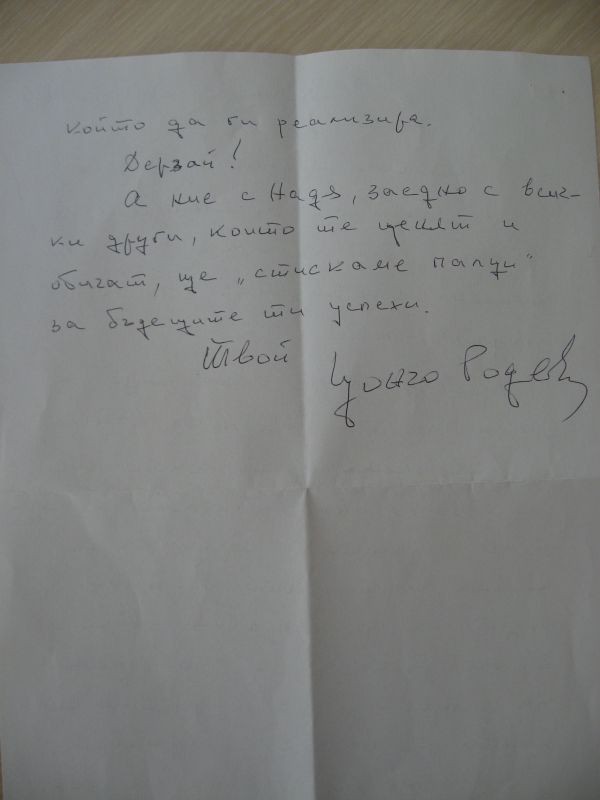 който да ги реализира.
Дерзай!
А ние с Надя, заедно с всич-
ки други, които те ценят и
обичат, ще „стискаме палци"
за бъдещите ти успехи.
Твой Цончо Родев